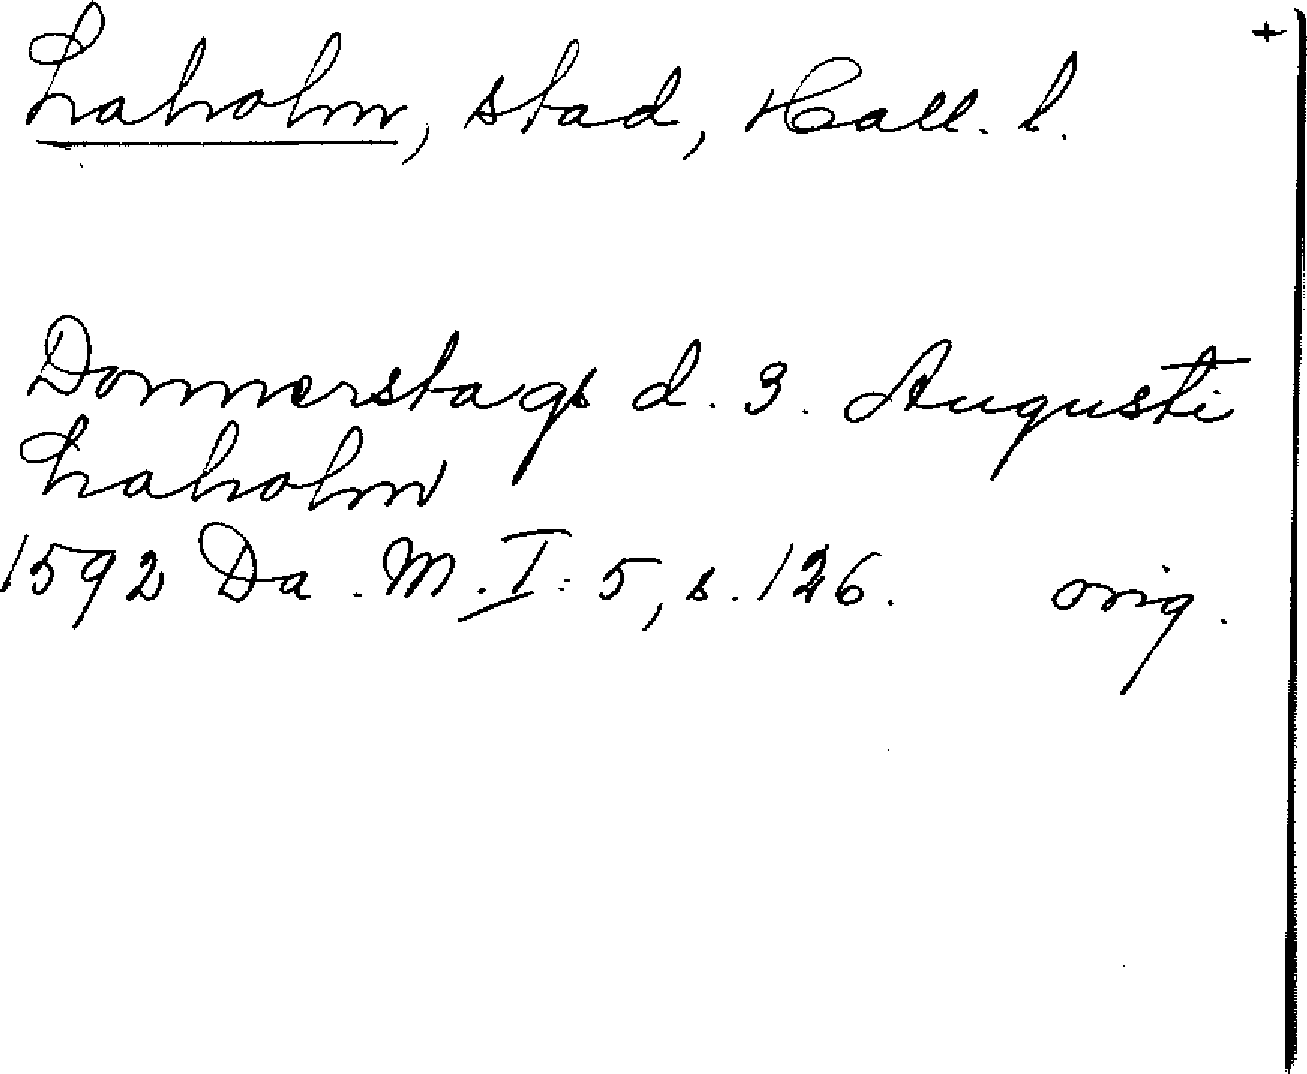 Laholm, stad, Hall. l. +
Donnerstags d. 3. Augusti
Laholm
1592 Da. M. I: 5, s. 126. orig.